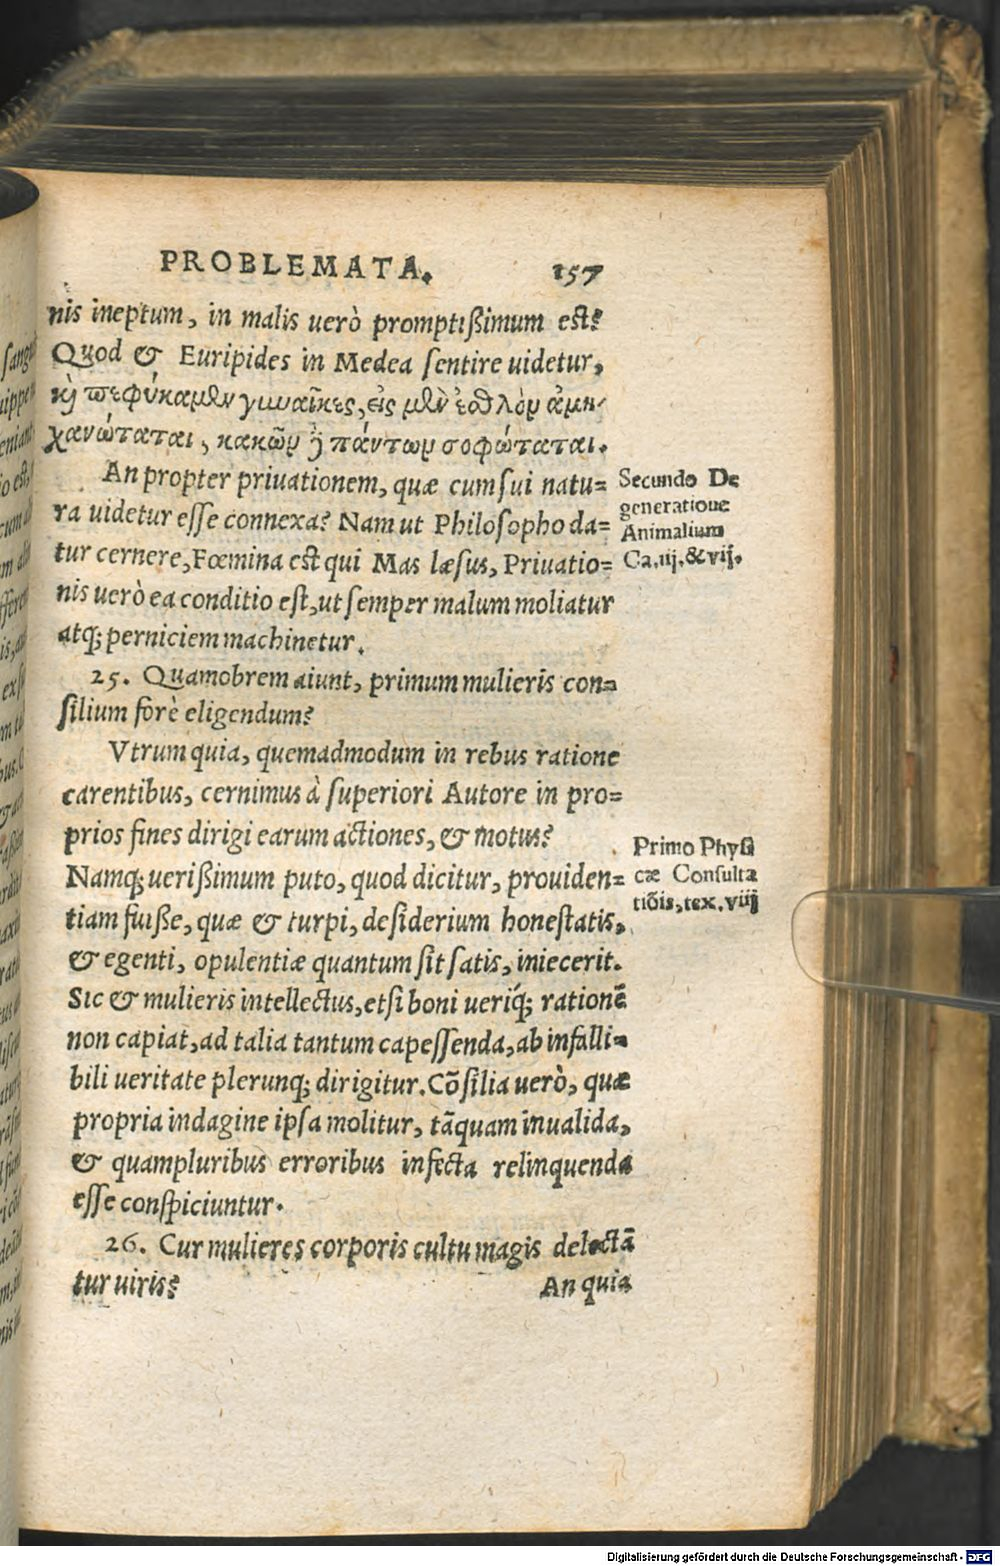 PROBLEMATA. 157
nis ineptum, in malis uerò promptißimum est?
Quod & Euripides in Medea sentire uidetur,
κỳ πεφύκαμϟν γυναῖκες, εἰς μϟν ἐσθλὸν ἀμη-
χανώταται, κακῶν ȝ̀ πάντων σοφώταται.
An propter priuationem, quæ cum sui natu=
ra uidetur esse connexa? Nam ut Philosopho da=
tur cernere, Fœmina est qui Mas læsus, Priuatio=
nis uerò ea conditio est, ut semper malum moliatur
atq; perniciem machinetur.
Secundo De
generatione
Animalium
Ca.iij.&vij.
25. Quamobrem aiunt, primum mulieris con=
silium forè eligendum?
Vtrum quia, quemadmodum in rebus ratione
carentibus, cernimus à superiori Autore in pro=
prios fines dirigi earum actiones, & motus?
Namq; uerißimum puto, quod dicitur, prouiden=
tiam fuiße, quæ & turpi, desiderium honestatis,
& egenti, opulentiæ quantum sit satis, iniecerit.
Sic & mulieris intellectus, etsi boni ueriq́; rationẽ
non capiat, ad talia tantum capessenda, ab infalli=
bili ueritate plerunq; dirigitur. Cõsilia uerò, quæ
propria indagine ipsa molitur, tãquam inualida,
& quampluribus erroribus infecta relinquenda
esse conspiciuntur.
Primo Physi
cæ Consulta
tiõis, tex. viij
26. Cur mulieres corporis cultu magis delectã
tur uiris? An quia
Digitalisierung gefördert durch die Deutsche Forschungsgemeinschaft - DFG